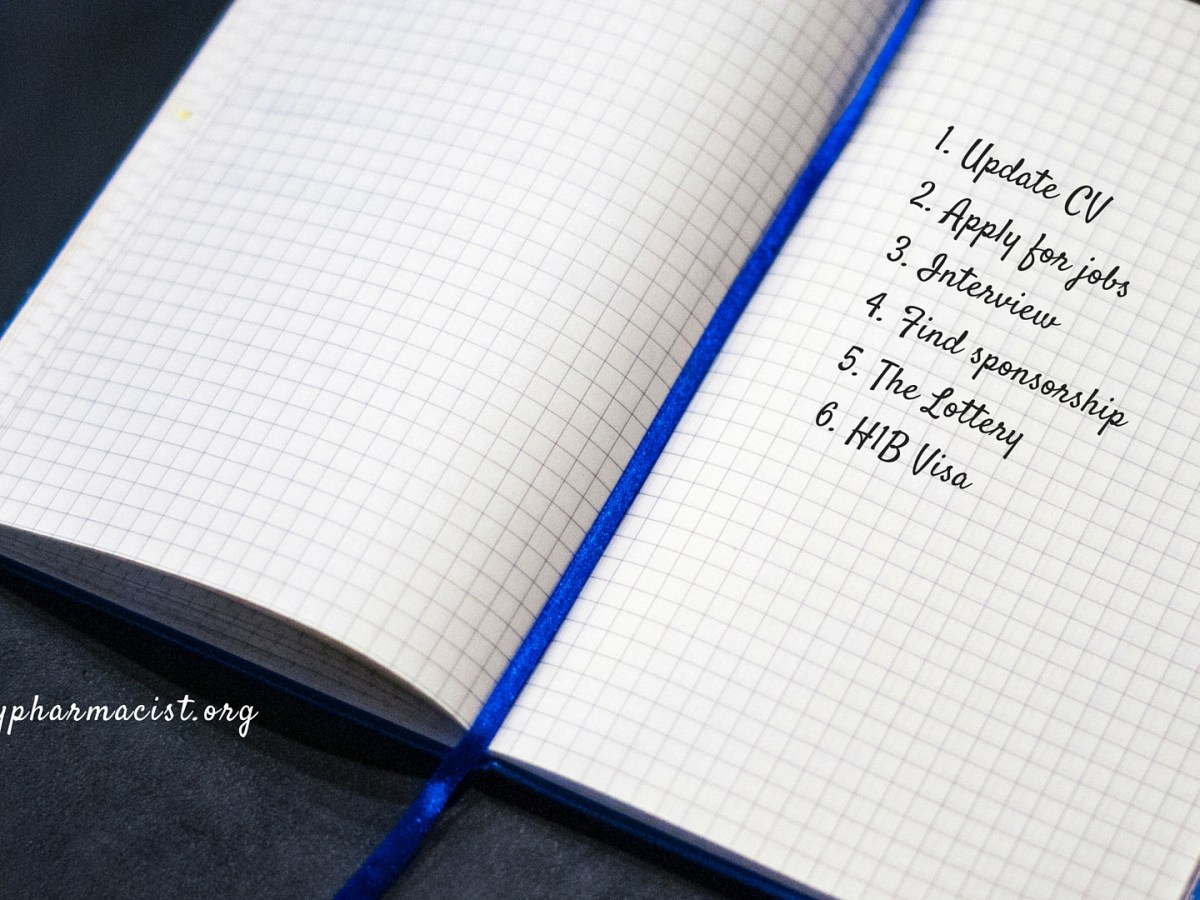 1. Update CV
2. Apply for jobs
3. Interview
4. Find sponsorship
5. The Lottery
6. H1B Visa
ypharmacist.org